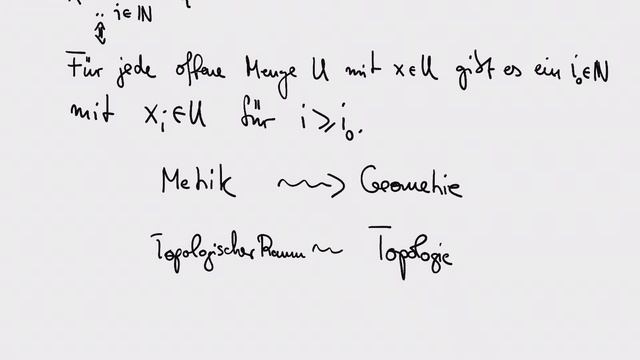 i∈ℕ
⇕
Für jede offene Menge U mit x∈U gibt es ein i₀∈ℕ
mit xᵢ∈U für i⩾i₀.
Metrik ⇝ Geometrie
Topologischer Raum ~ Topologie